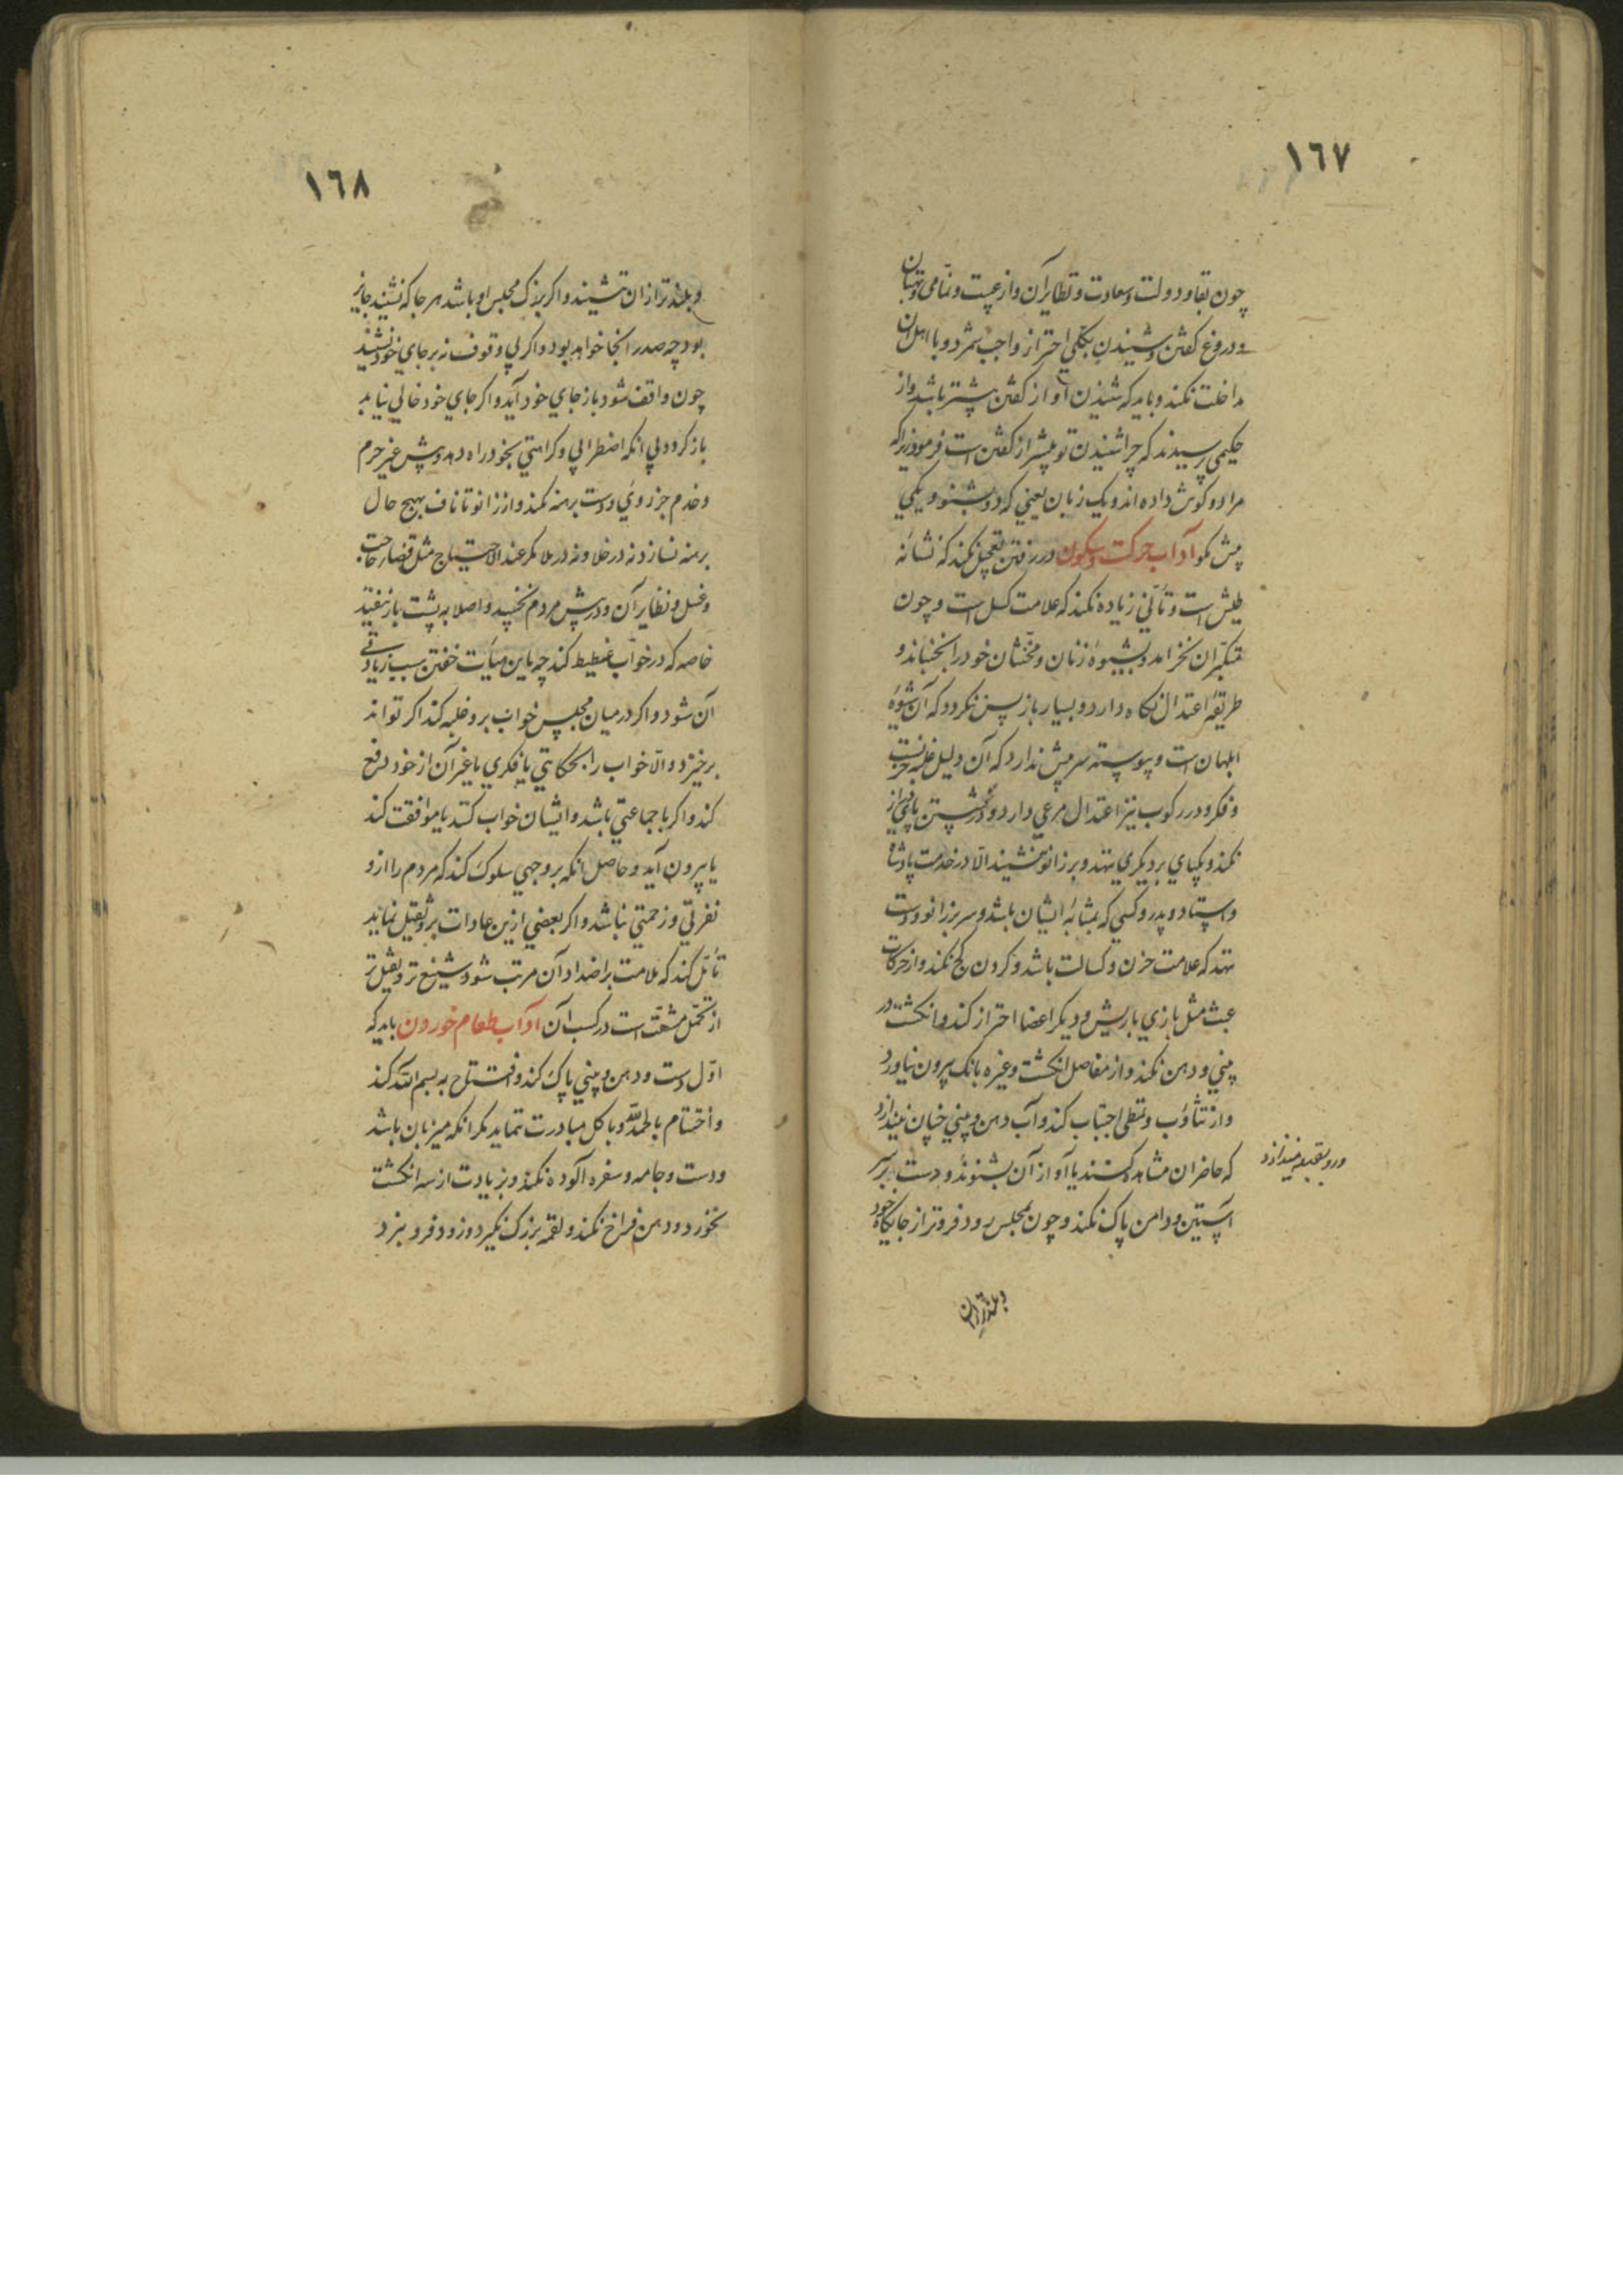 ١٦٧
چون بقا و دولت و سعادت و نظایر آن و از غیبت و نمّامی و بهتان
و دروغ کفتن و شنیدن بکلّی احتراز واجب شمرد و با اهل آن
مداخلت نکند و باید که شنیدن او از کفتن بیشتر باشد و از
حکیمی پرسیدند که چرا شنیدن تو بیشتر از کفتن است فرمود زیرا که
مرا دو کوش داده اند و یک زبان یعنی که دو بشنو و یکی
بیش مکو آداب حرکت و سکون در رفتن تعجیل نکند که نشانه
طیش است و تأنّی زیاده نکند که علامت کسل است و چون
متکبّران نخرامد و بشیوهٔ زنان و مخنّثان خود را نجنباند و
طریقهٔ اعتدال نکاه دارد و بسیار باز پس ننکرد که آن شیوهٔ
ابلهان است و پیوسته سر پیش ندارد که آن دلیل غلبهٔ حزنست
و فکر و در رکوب نیز اعتدال مرعی دارد و در نشستن پای دراز
نکند و یکپای بر دیکری ننهد و بر زانو ننشیند الّا در خدمت پادشاه
و استاد و پدر و کسی که بمثابهٔ ایشان باشد و سر بر زانو و دست
ننهد که علامت حزن و کسالت باشد و کردن کج نکند و از حرکات
عبث مثل بازی با ریش و دیکر اعضا احتراز کند و انکشت در
بینی و دهن نکند و از مفاصل انکشت و غیره بانک بیرون نیاورد
و از تثاؤب و تمطی اجتناب کند و آب دهن و بینی چنان نیندازد
که حاضران مشاهده کنند یا آواز آن بشنوند و دست بر سر
آستین و دامن پاک نکند و چون بمجلس رود فروتر از جایکاه خود
و رو بقبله نیندازد
و بلندتر از ان
١٦٨
و بلندتر از ان ننشیند و اکر بزرک مجلس او باشد هر جا که نشیند جایز
بود چه صدر انجا خواهد بود و اکر بی وقوف نه بر جای خود نشیند
چون واقف شود باز جای خود آید و اکر جای خود خالی نیابد
باز کردد بی انکه اضطرابی و کراهتی بخود راه دهد و پیش غیر حرم
و خدم جز روی و دست برهنه نکند و از زانو تا ناف بهیچ حال
برهنه نسازد نه در خلا و نه در ملا مکر عند الاحتیاج مثل قضاء حاجت
و غسل و نظایر آن و در پیش مردم نخسپد و اصلا به پشت باز نیفتد
خاصه که در خواب غطیط کند چه باین هیأت خفتن سبب زیادتی
آن شود و اکر در میان مجلس خواب برو غلبه کند اکر تواند
برخیزد و الّا خواب را بحکایتی یا فکری یا غیر آن از خود دفع
کند و اکر با جماعتی باشد و ایشان خواب کنند یا موافقت کند
یا بیرون آید و حاصل انکه بر وجهی سلوک کند که مردم را ازو
نفرتی و زحمتی نباشد و اکر بعضی ازین عادات برو ثقیل نماید
تأمّل کند که ملامت بر اضداد آن مرتب شود شنیع تر و ثقیل تر
از تحمّل مشقّت است در کسب آن آداب طعام خوردن باید که
اوّل دست و دهن و بینی پاک کند و افتتاح به بسم الله کند
و اختتام بالحمدلله و باکل مبادرت ننماید مکر انکه میزبان باشد
و دست و جامه و سفره آلوده نکند و بزیادت از سه انکشت
نخورد و دهن فراخ نکند و لقمه بزرک نکیرد و زود فرو نبرد